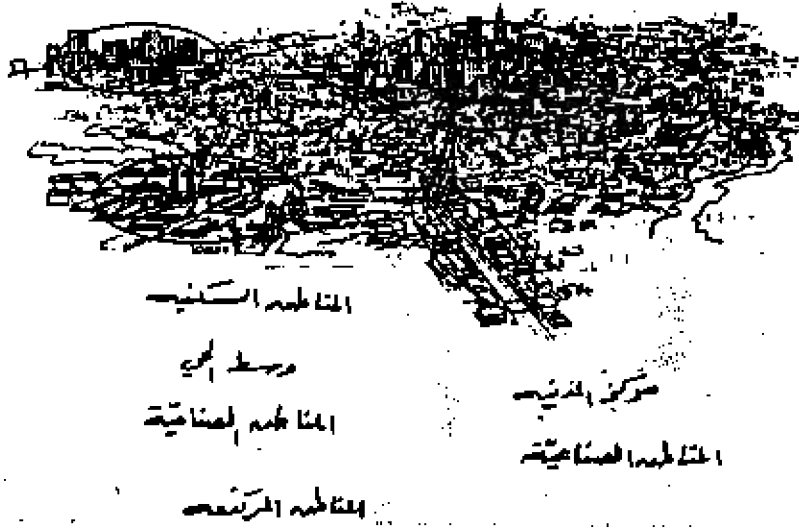 المناطق السكنية
وسط الحي
المناطق الصناعية
المناطق
مركز المدينة
المناطق الصناعية